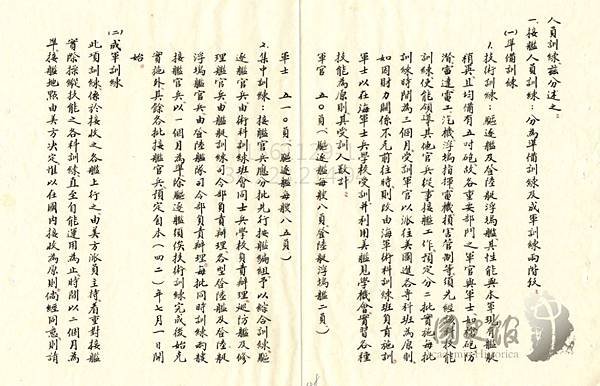 人員訓練茲分述之:
一、接艦人員訓練:分為準備訓練及成軍訓練兩階段
(一)準備訓練
1.技術訓練:驅逐艦及登陸艇浮塢艦其性能與本軍現
稍異且均備有五吋砲故各重要部門之軍官與軍士如砲防
潛雷達電工汽機浮塢指揮電機損害管制等須先經
訓練使能領導其他官兵從事接艦工作預定分二批實施每批
訓練時間為二個月受訓軍官以派往美國進各專科班為原則
如因財力關係不克前往時則改由海軍術科訓練班負責施訓
軍士以在海軍士兵學校受訓并利用美艦見學機會實習各種
技能為原則其受訓人數計:
軍官 五〇員(驅逐艦每艘八員登陸艇浮塢艦二員)
軍士 五一〇員(驅逐艦每艘八五員)
2.集中訓練:接艦官兵應分批先行按艦編組予以綜合訓練驅
逐艦官兵由術科訓練班會同士兵學校負責辦理巡防艦及修
理艦官兵由艦艇訓練司令部負責辦理各型登陸艦及登陸艇
浮塢艦官兵由登陸艦隊司令部負責辦理每批同時訓練兩艘
接艦官兵以一個月為準除驅逐艦須俟技術訓練完成後始先
實施外其餘各批接艦官兵預定自本(四二)年七月一日開
始
(二)成軍訓練
此項訓練係於接收之各艦上行之由美方派員主持着重對接艦
實際操縱技能之各科訓練直至自能運用為止時間以二個月為
準接艦地點由美方決定惟以在國內接收為原則倘經同意則請
國史館
Academia Historica